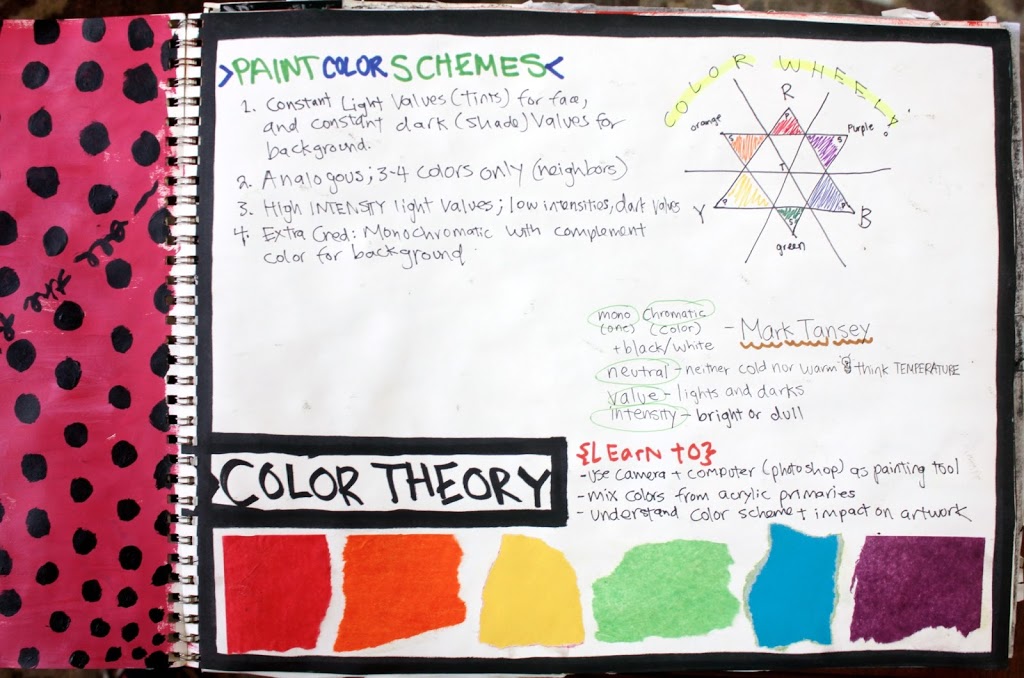 >PAINT COLOR SCHEMES<
1. Constant Light Values (Tints) for face,
and constant dark (shade) Values for
background.
2. Analogous; 3-4 colors only (neighbors)
3. High INTENSITY light values; low intensities, dark values
4. Extra Cred: Monochromatic with complement
color for background
COLOR WHEEL
R
orange
Purple
P
S
S
T
Y
P
P
B
S
green
mono chromatic
(one) (color)
+ black/white
- Mark Tansey
neutral - neither cold nor warm think TEMPERATURE
value - lights and darks
intensity - bright or dull
{LEarn to}
- use camera + computer (photoshop) as painting tool
- mix colors from acrylic primaries
- understand color scheme + impact on artwork
COLOR THEORY